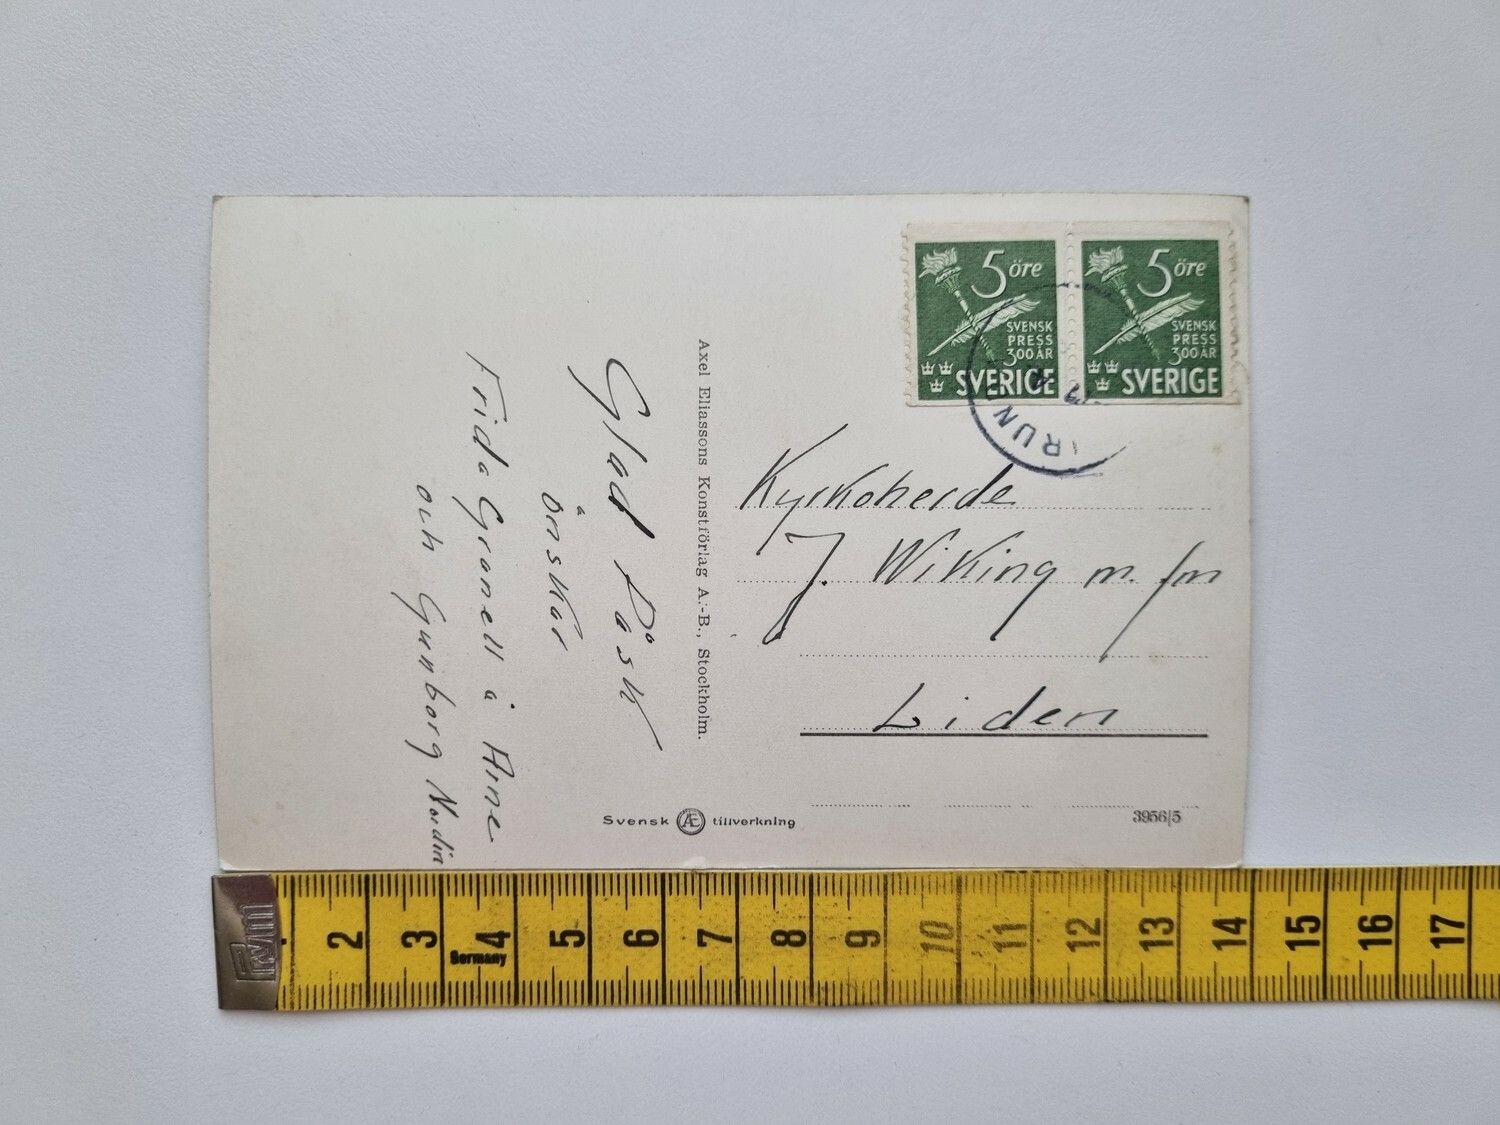 5 öre
SVENSK
PRESS
300 ÅR
SVERIGE
5 öre
SVENSK
PRESS
300 ÅR
SVERIGE
Kyrkoherde
J. Wiking m. fm
Liden
3956/5
Axel Eliassons Konstförlag A.-B., Stockholm.
Svensk Æ tillverkning
Glad Påsk
önskar
Frida Granell å Arne
och Gunborg Nordin
Prym
2 3 4 5 6 7 8 9 10 11 12 13 14 15 16 17
Germany